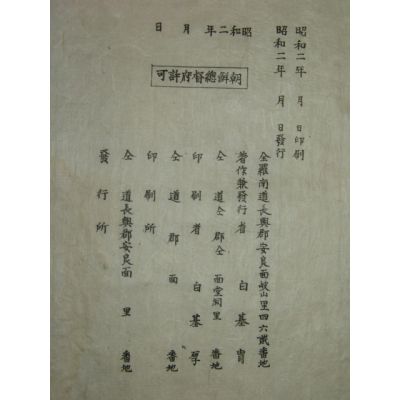 昭和二年　月　日印刷
昭和二年　月　日發行
全羅南道長興郡安良面岐山里四六貳番地
著作兼發行者　白基胄
仝道仝郡仝面堂祠里　番地
印刷者　白基
仝道　郡　面　番地
印刷所
仝道長興郡安良面　里　番地
發行所
昭和二年　月　日
朝鮮總督府許可